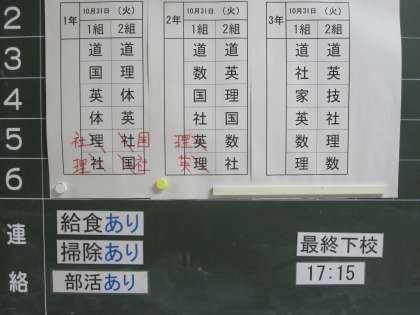 1年 10月31日 (火) 2年 10月31日 (火) 3年 10月31日 (火)
1組 2組 1組 2組 1組 2組
道 道 道 道 道 道
2 国 理 数 英 社 英
3 英 体 国 理 家 技
4 体 英 社 国 英 社
5 社 理 社 国 理 英 数 数 理
6 理 社 国 社 英 理 社 理 数
連絡
給食あり
掃除あり
部活あり
最終下校
17:15